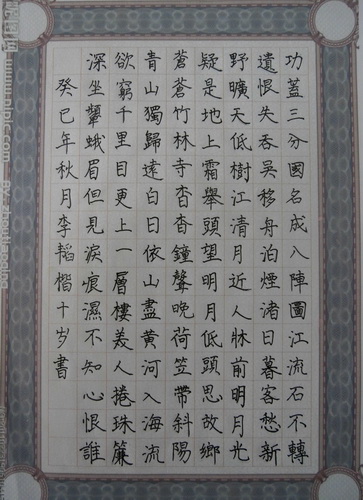 功蓋三分國名成八陣圖江流石不轉
遺恨失吞吳移舟泊煙渚日暮客愁新
野曠天低樹江清月近人牀前明月光
疑是地上霜舉頭望明月低頭思故鄉
蒼蒼竹林寺杳杳鐘聲晚荷笠帶斜陽
青山獨歸遠白日依山盡黃河入海流
欲窮千里目更上一層樓美人捲珠簾
深坐顰蛾眉但見淚痕濕不知心恨誰
癸巳年秋月李韜楷十岁書